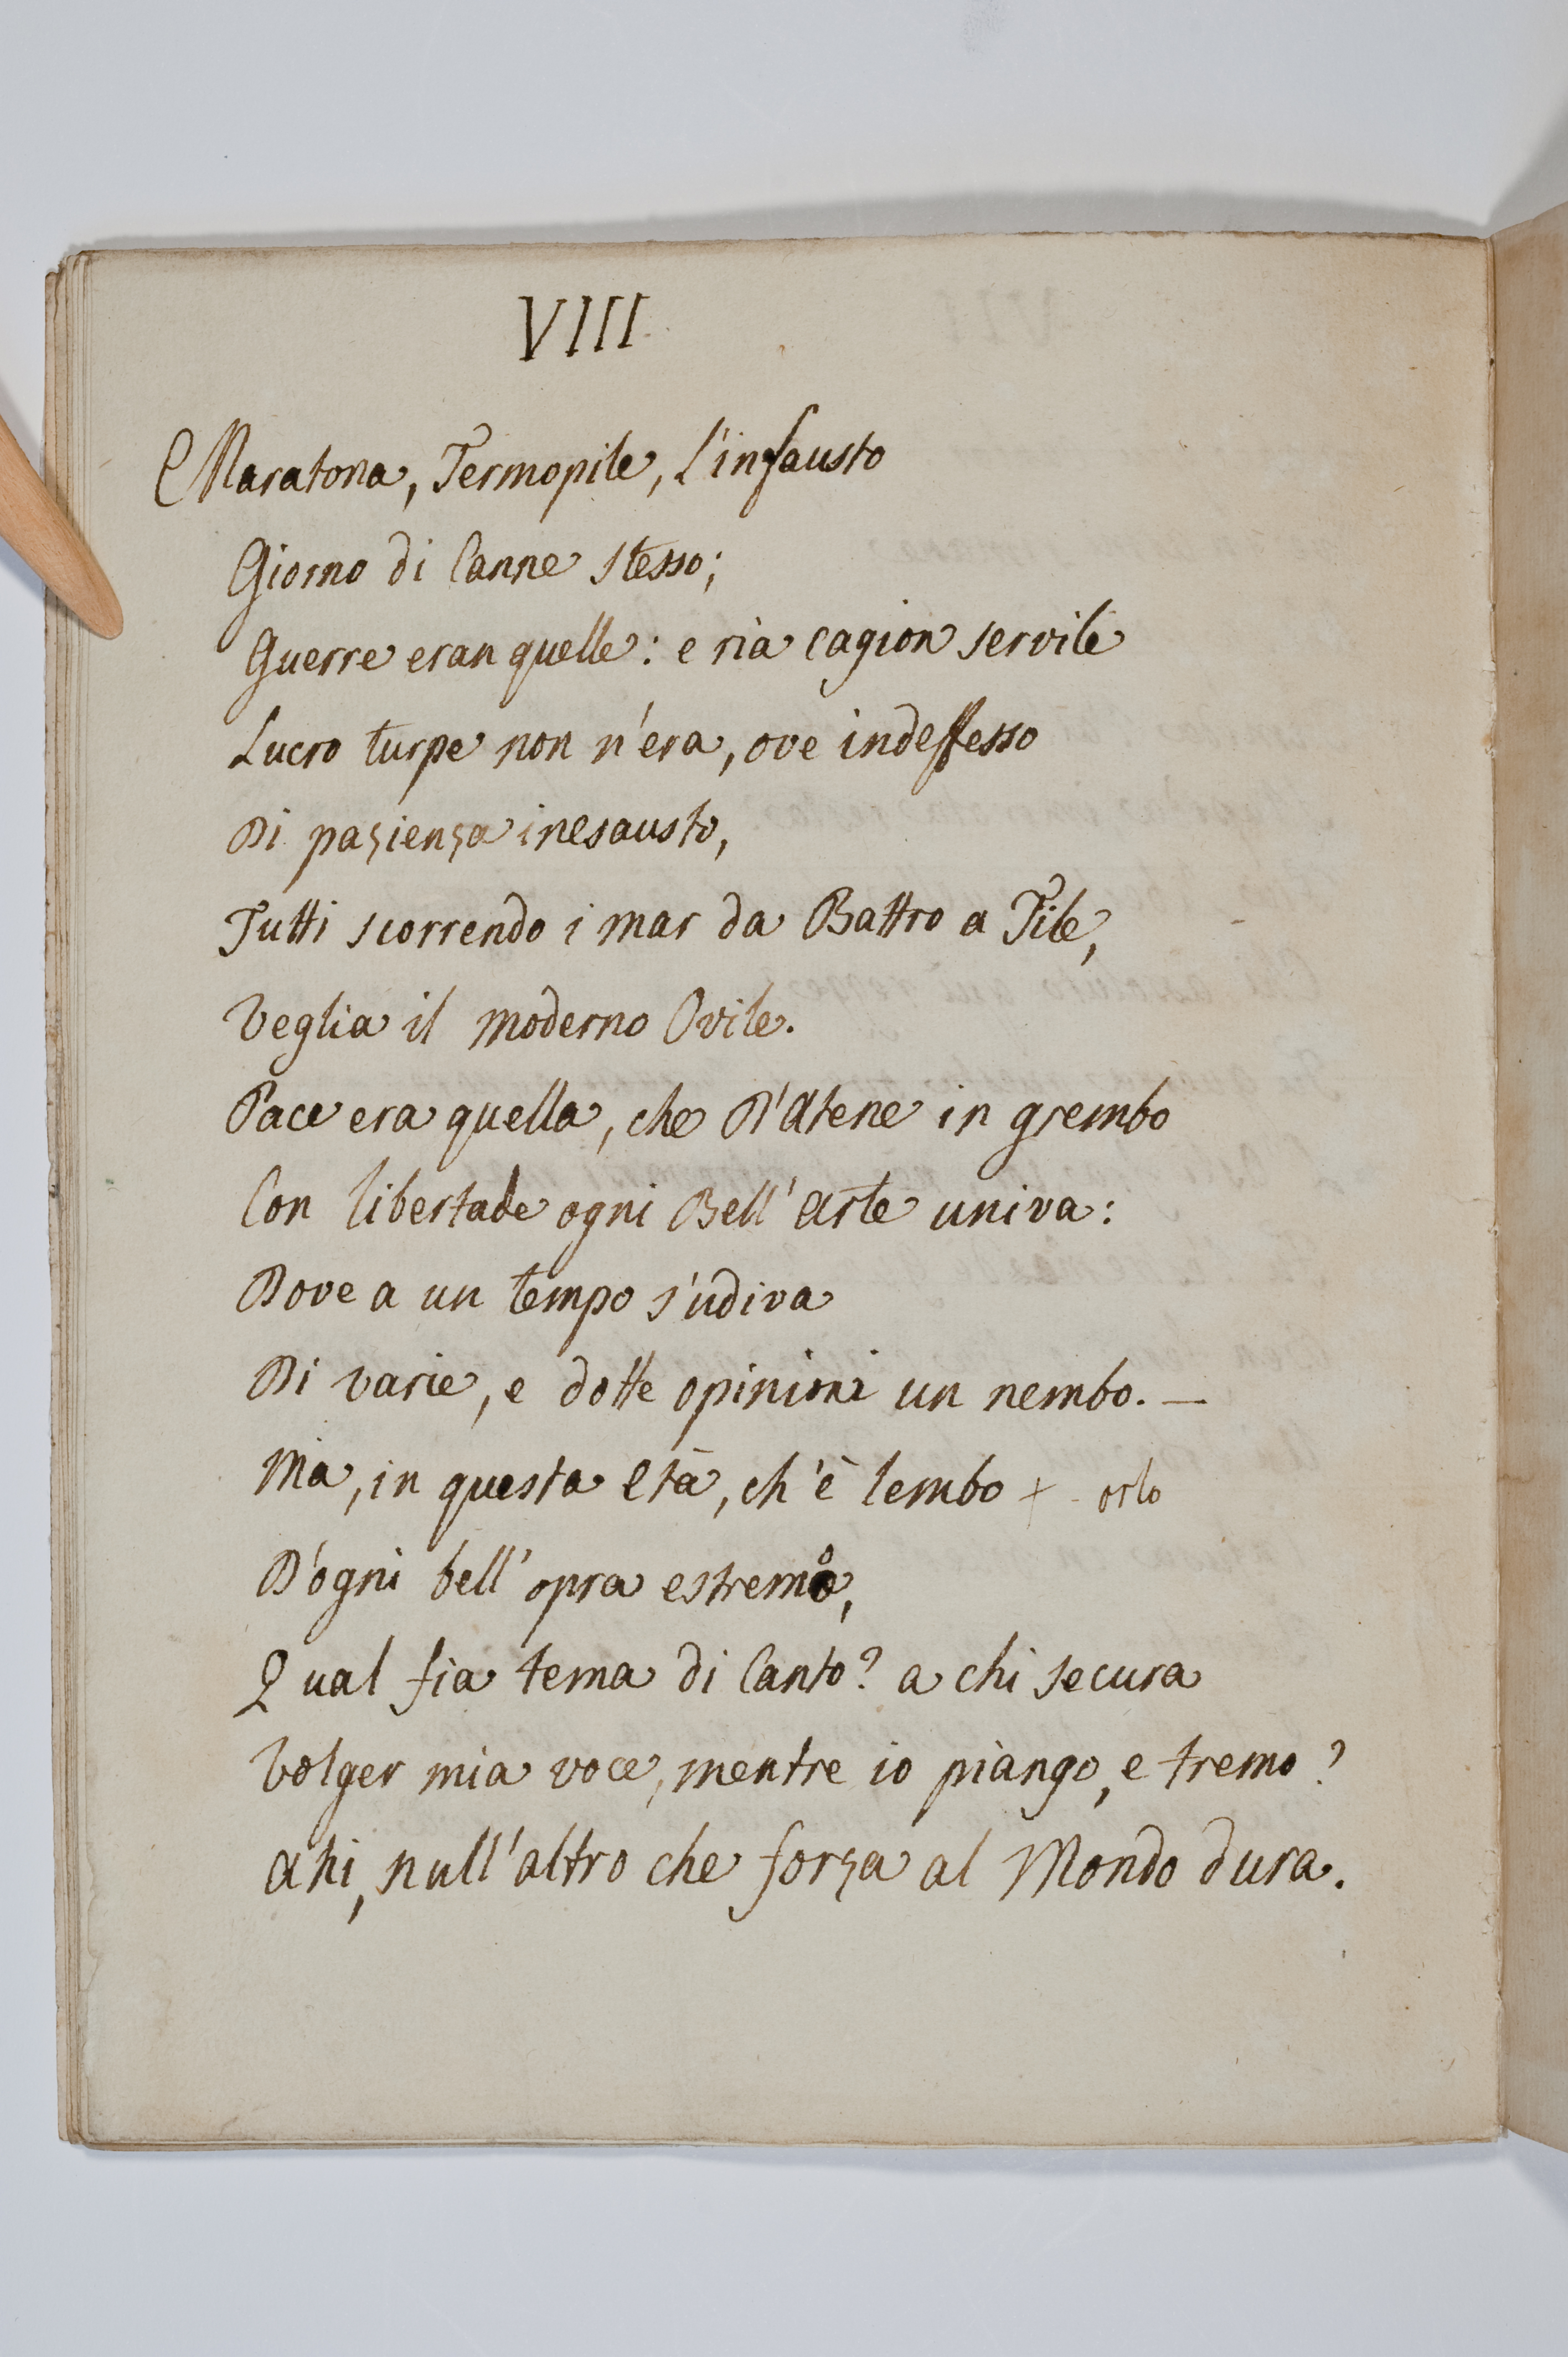 VIII
Maratona, Termopile, l'infausto
Giorno di Canne stesso;
Guerre eran quelle: e ria cagion servile
Lucro turpe non n'era, ove indefesso
Di pazienza inesausto,
Tutti scorrendo i mar da Battro a Tile,
Veglia il moderno Ovile.
Pace era quella, che D'Atene in grembo
Con libertade ogni Bell'Arte univa:
Dove a un tempo s'udiva
Di varie, e dotte opinioni un nembo. —
Ma, in questa Età, ch'è lembo + orlo
D'ogni bell'opra estremo,
Qual fia tema di Canto? a chi secura
Volger mia voce, mentre io piango, e tremo?
Ahi, null'altro che forza al Mondo dura.